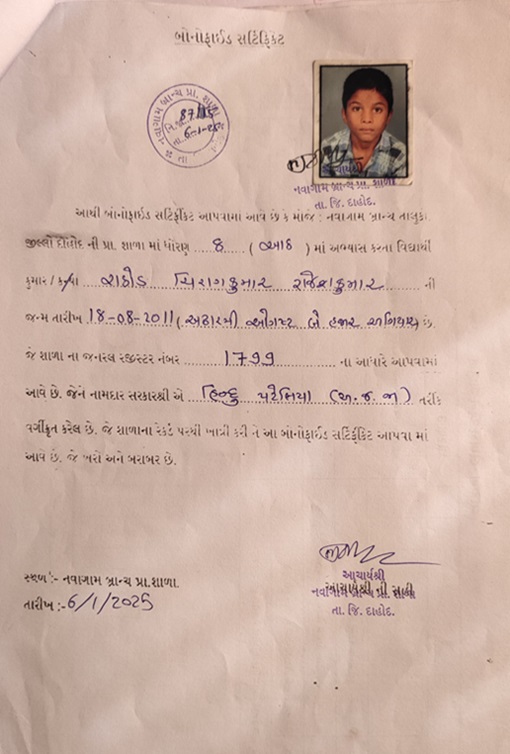 બોનોફાઈડ સર્ટિફિકેટ
નવાગામ બ્રાન્ચ પ્રા. શાળા
આચાર્યશ્રી
નવાગામ બ્રાન્ચ પ્રા. શાળા
તા. જિ. દાહોદ.
આથી બોનોફાઈડ સર્ટિફીકેટ આપવામાં આવે છે કે મોજે : નવાગામ બ્રાન્ચ તાલુકા.
જીલ્લો દાહોદ ની પ્રા. શાળા માં ધોરણ ....8....( આઠ ) માં અભ્યાસ કરતા વિદ્યાર્થી
કુમાર / કન્યા રાઠોડ ચિરાગકુમાર રાજેશકુમાર ની
જન્મ તારીખ 18-08-2011 ( અઢારમી ઓગષ્ટ બે હજાર અગિયાર ) છે.
જે શાળા ના જનરલ રજીસ્ટર નંબર 1799 ના આધારે આપવામાં
આવે છે. જેને નામદાર સરકારશ્રી એ હિન્દુ પટેલિયા (અ.જ.જા) તરીકે
વર્ગીકૃત કરેલ છે. જે શાળાના રેકર્ડ પરથી ખાત્રી કરી ને આ બોનોફાઈડ સર્ટિફીકેટ આપવા માં
આવે છે. જે ખરો અને બરાબર છે.
સ્થળ :- નવાગામ બ્રાન્ચ પ્રા.શાળા.
તારીખ :- 6/1/2025
આચાર્યશ્રી
આચાર્યશ્રી ની સહી
નવાગામ બ્રાન્ચ પ્રા. શાળા
તા. જિ. દાહોદ.